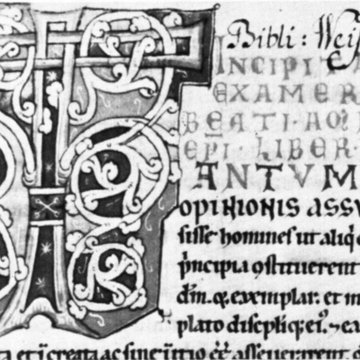 Bibli: Wei
INCIPIT
EXAMER
BEATI·A
EPI·LIBER·
TANTUM
OPINIONIS ASSV
sisse homines ut aliq
principia ostituerent
dm. q; exemplar. et m
plato discipliq; ei'. ea
et increata ac sine initio